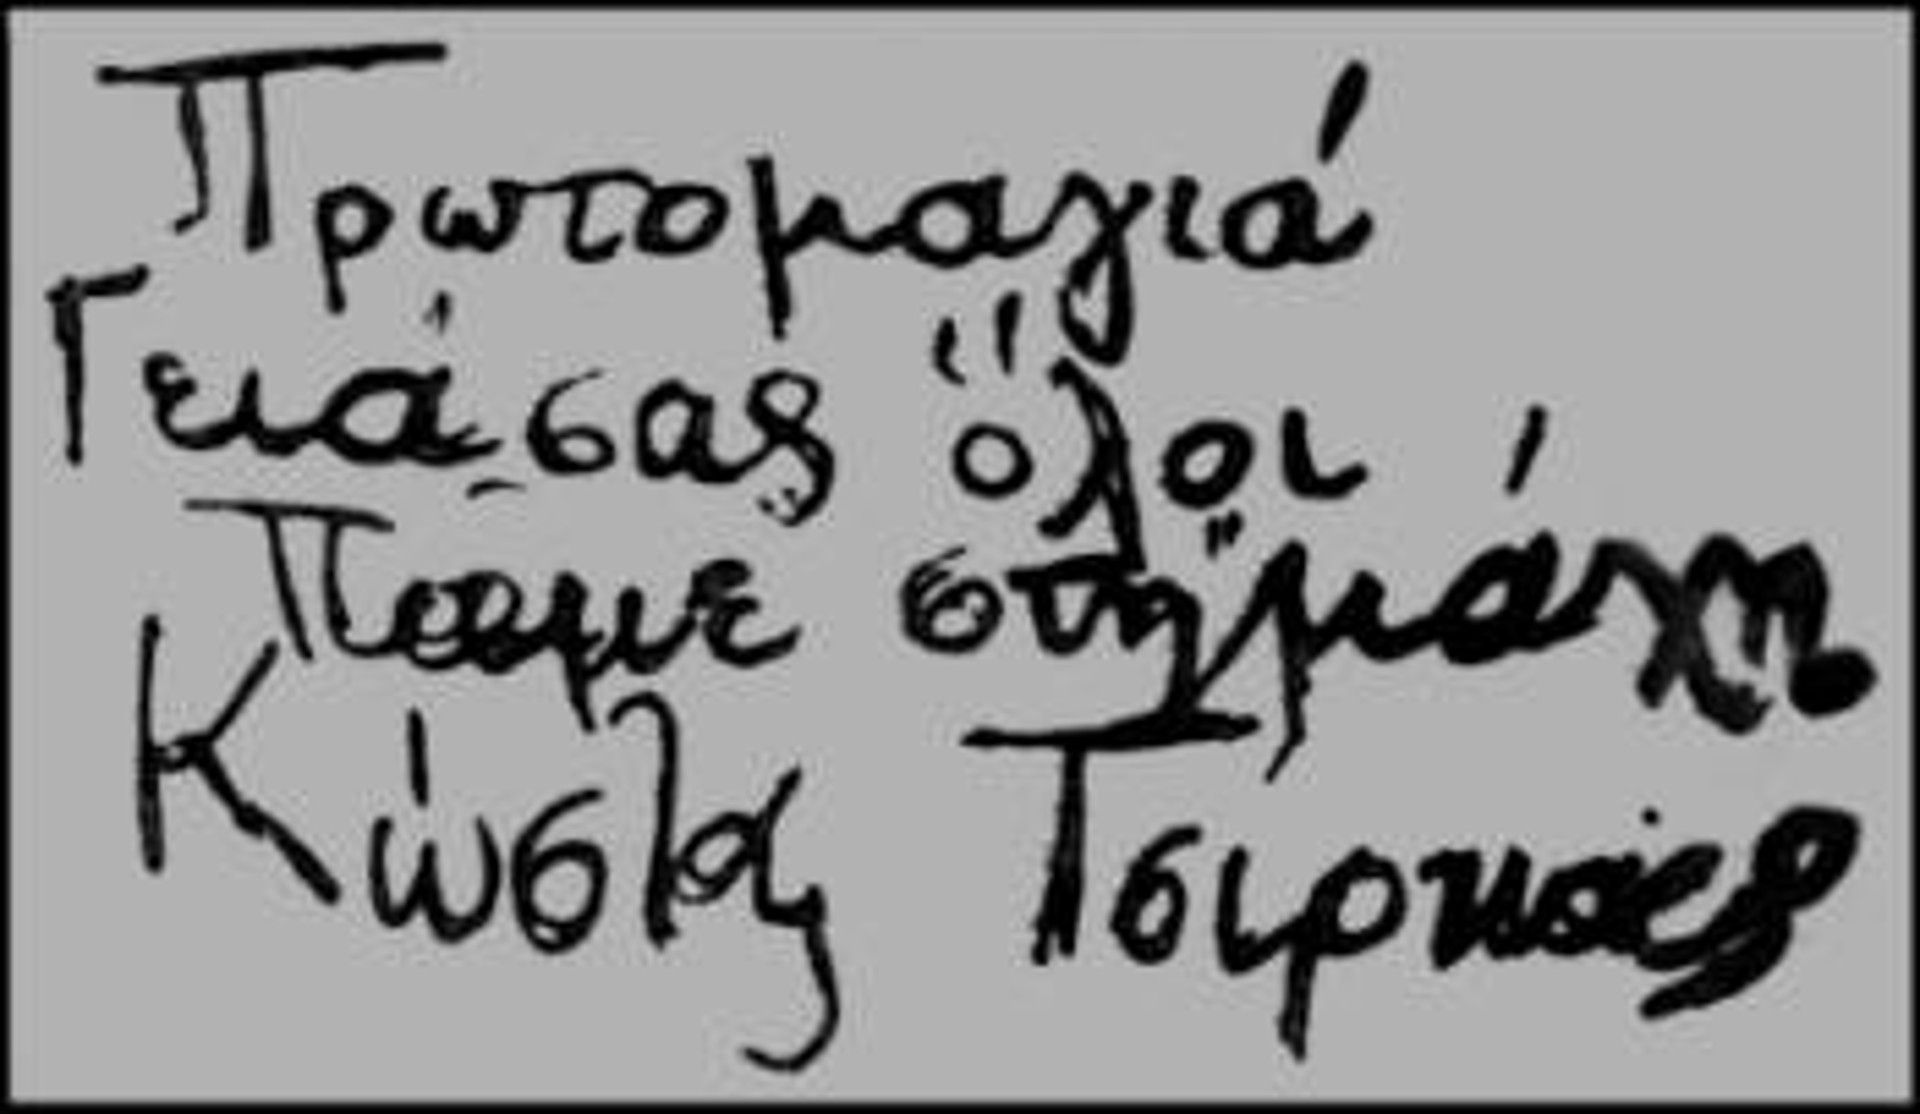 Πρωτομαγιά
Γειά σας ὅλοι
Παμε στη μάχη
Κώστας Τσιρκας